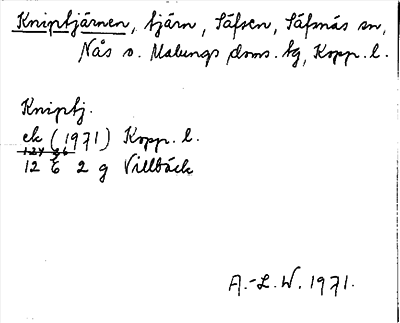 Kniptjärnen, tjärn, Säfsen, Säfsnäs sn,
Nås o. Malungs doms. tg, Kopp. l.
Kniptj.
ek (1971) Kopp. l.
12 E 2 g Villbäck
A.-L. W. 1971.